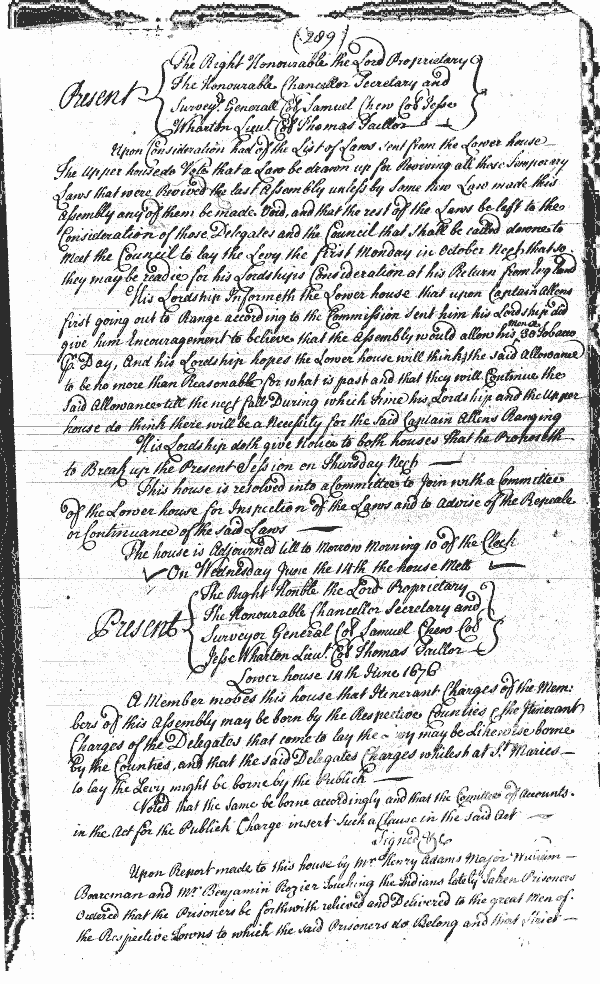 (289)
The Right Honourable the Lord Proprietary
The Honourable Chancellor Secretary and
Present
Survey.r Generall Col Samuel Chew Col Jesse
Wharton Lieut Col Thomas Taillor
Upon Consideration had of the List of Laws sent from the Lower house
The Upper house do Vote that a Law be drawn up for Reviving all those Temporary
Laws that were Revived the last Assembly unless by Some new Law made this
Assembly any of them be made Void, and that the rest of the Laws be left to the
Consideration of those Delegates and the Council that shall be called downe to
meet the Council to lay the Levy the first Monday in October Next, that so
they may be readie for his Lordships Consideration at his Return from England
His Lordship Informeth the Lower house that upon Captain Allens
first going out to Range according to the Commission sent him his Lordship did
give him Encouragement to believe that the Assembly would allow his men 30 Tobacco
P Day, And his Lordship hopes the Lower house will think the said Allowance
to be no more than Reasonable for what is past and that they will Continue the
said Allowance till the next fall During which time his Lordship and the Upper
house do think there will be a Necessity for the Said Captain Allens Ranging
His Lordship doth give Notice to both houses that he Proposeth
to Break up the Present Session on Thursday Next
This house is resolved into a Committee to Join with a Committee
of the Lower house for Inspection of the Laws and to Advise of the Repeale
or Continuance of the said Laws
The house is Adjourned till to Morrow Morning 10 of the Clock
On Wednesday June the 14th the house Mett
The Right Honble the Lord Proprietary
The Honourable Chancellor Secretary and
Present
Surveyor General Col Samuel Chew Col
Jesse Wharton Lieut Col Thomas Taillor
Lower house 14th June 1676
A Member moves this house that Itenerant Charges of the Mem:
bers of this Assembly may be born by the Respective Counties & the Itinerant
Charges of the Delegates that come to lay the may be Likewise borne
by the Counties, and that the said Delegates Charges whilest at St Maries
to lay the Levy might be borne by the Publick
Voted that the same be borne accordingly and that the Comittee of Accounts
in the Act for the Publick Charge insert such a Clause in the said Act
Signed &c
Upon Report made to this house by Mr Henry Adams Major William
Boarman and Mr Benjamin Rozier touching the Indians lately Taken Prisoners
Ordered that the Prisoners be forthwith relieved and Delivered to the great Men of
the Respective Towns to which the said Prisoners do Belong and that Strict